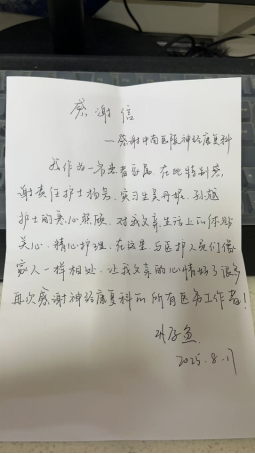 感谢信
—感谢中南医院神经康复科
我作为一名患者家属在此特别感
谢责任护士杨芳、实习生吴丹妮、孙懿
护士的关心照顾,对我父亲生活上的体贴
关心,精心护理,在这里与医护人员们像
家人一样相处,让我父亲的心情好了很多
再次感谢神经康复科的所有医务工作者!
2025.8.17